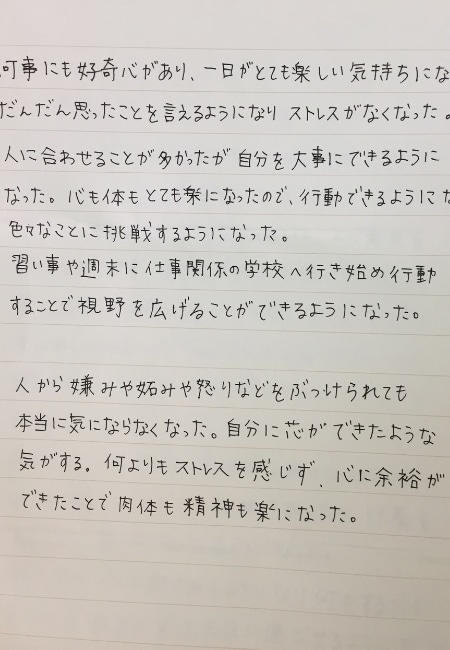 何事にも好奇心があり、一日がとても楽しい気持ちにな
だんだん思ったことを言えるようになり ストレスがなくなった。
人に合わせることが多かったが 自分を大事にできるように
なった。心も体もとても楽になったので、行動できるようにな
色々なことに挑戦するようになった。
習い事や週末に仕事関係の学校へ行き始め行動
することで視野を広げることができるようになった。
人から嫌みや妬みや怒りなどをぶつけられても
本当に気にならなくなった。自分に芯ができたような
気がする。何よりもストレスを感じず、心に余裕が
できたことで肉体も精神も楽になった。